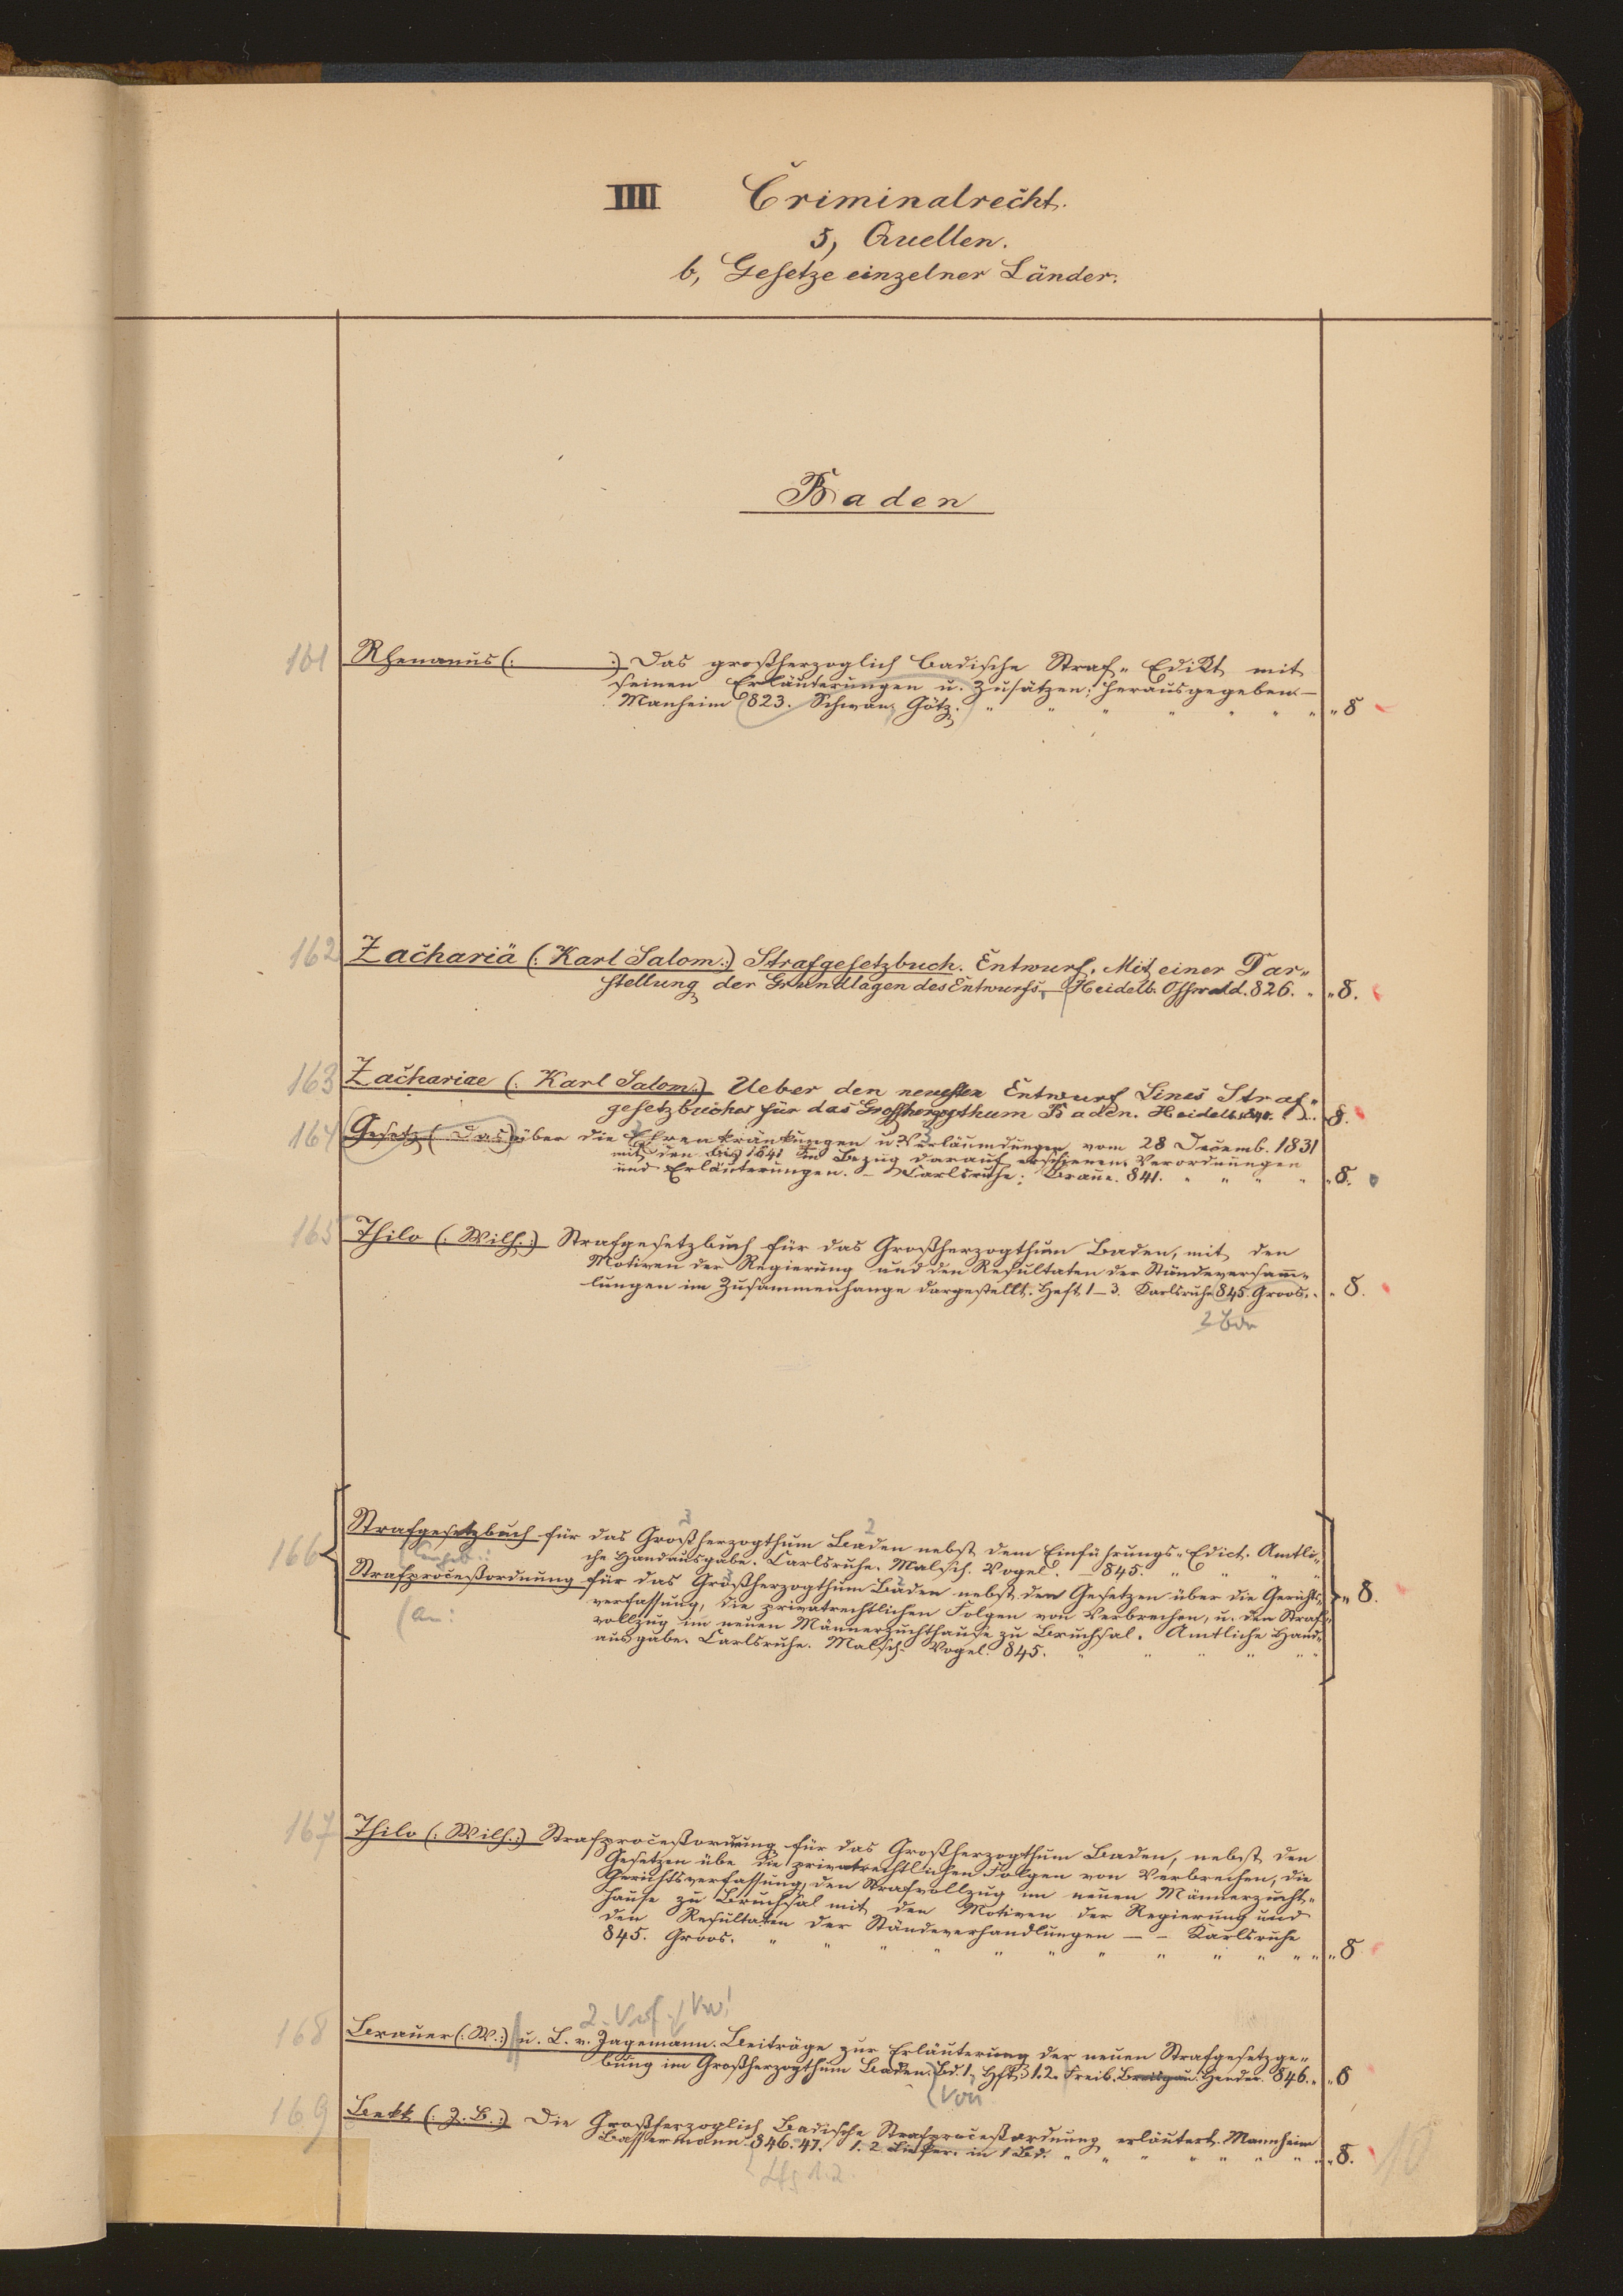 IIII Criminalrecht.
5, Quellen.
b, Gesetze einzelner Länder.
Baden
161 Rhenanus (: :) Das großherzoglich badische Straf-Edikt mit
seinen Erläuterungen u. Zusätzen: herausgegeben —
Manheim 823. Schwan Götz. " " " " " " " " 8
162 Zachariä (: Karl Salom:) Strafgesetzbuch. Entwurf. Mit einer Dar-
stellung der Grundlagen des Entwurfs. — Heidelb. Osswald. 826. " " 8.
163 Zachariae (: Karl Salom:) Ueber den neuesten Entwurf Eines Straf-
gesetzbuches für das Großherzogthum Baden. Heidelb. 840. 8.
164 Gesetz (Das) über die Ehrenkränkungen u Verläumdungen vom 28 Decemb. 1831
mit den bis 1841 in Bezug darauf erschienen. Verordnungen
und Erläuterungen. — Carlsruhe: Braun. 841. " " " " " 8.
165 Thilo (: Wilh.:) Strafgesetzbuch für das Großherzogthum Baden, mit den
Motiven der Regierung und den Resultaten der Ständeversamm-
lungen im Zusammenhange dargestellt. Heft 1–3. Karlsruhe 845. Groos. " " 8.
2 Bde
3 2
Strafgesetzbuch für das Großherzogthum Baden nebst dem Einführungs-Edict. Amtli-
166 che Handausgabe. Carlsruhe. Malsch. Vogel. — 845. " " " "
Strafproceßordnung für das Großherzogthum Baden nebst den Gesetzen über die Gerichts- " 8.
verfassung, die privatrechtlichen Folgen von Verbrechen, u. den Straf-
(an:
vollzug im neuen Männerzuchthause zu Bruchsal. Amtliche Hand-
ausgabe. Carlsruhe. Malsch. Vogel. 845. " " " " " "
167 Thilo (: Wilh.:) Strafproceßordnung für das Großherzogthum Baden, nebst den
Gesetzen übe die privatrechtlichen Folgen von Verbrechen, die
Gerichtsverfassung, den Strafvollzug im neuen Männerzucht-
hause zu Bruchsal mit den Motiven der Regierung und
den Resultaten der Ständeverhandlungen — — Karlsruhe
845. Groos. " " " " " " " " " " " " 8
2. Verf. / Vw!
168 Brauer (: W.:) u. L. v. Jagemann. Beiträge zur Erläuterung der neuen Strafgesetzge-
bung im Großherzogthum Baden. Bd. 1, Hft. 1. 2. Freib. Breisgau. Herder. 846. " " 8
von
169 Bekk (: J. B.:) Die Großherzoglich Badische Strafproceßordnung erläutert. Mannheim
Bassermann. 846. 47. 1. 2 Liefer. in 1 Bd. " " " " " " " " 8. 10
Lfg 1. 2.